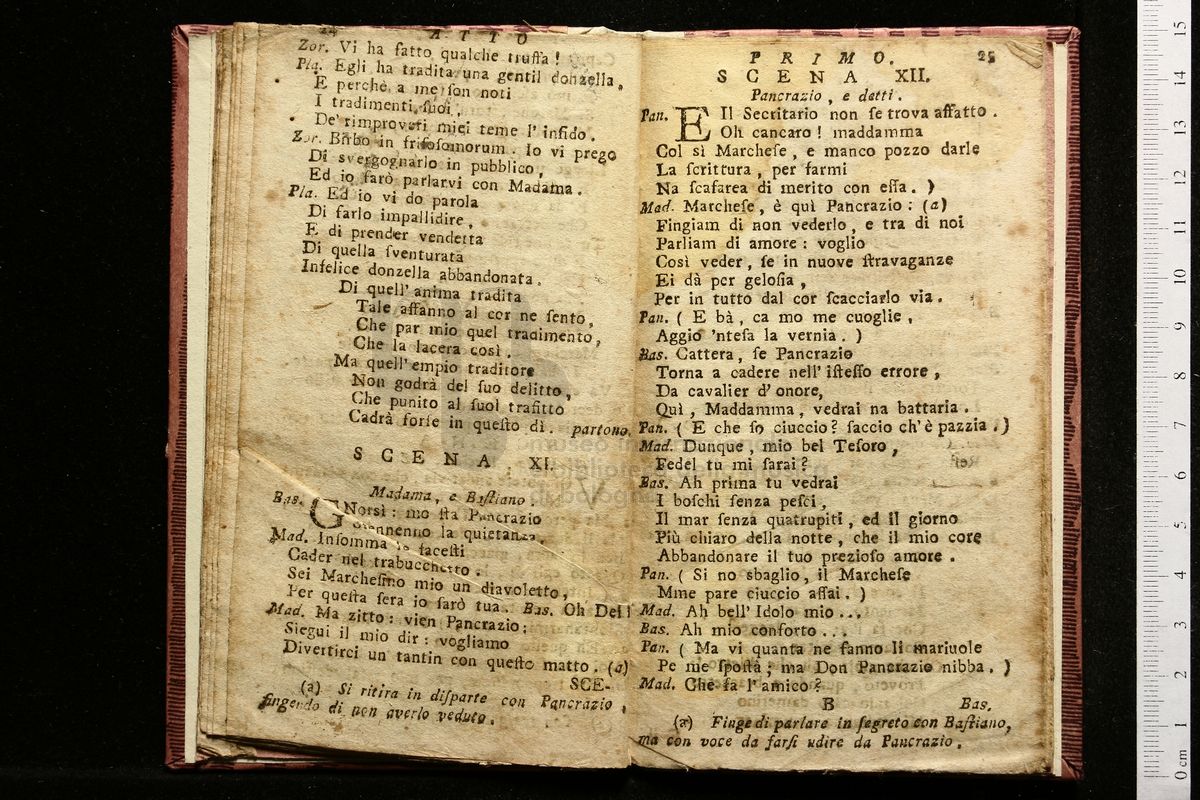 24 ATTO
Zor. Vi ha fatto qualche truffa!
Pla. Egli ha tradita una gentil donzella,
E perchè a me ſon noti
I tradimenti ſuoi,
De' rimproveri miei teme l'infido.
Zor. Bñbo in friſoſomorum. Io vi prego
Di svergognarlo in pubblico,
Ed io farò parlarvi con Madama.
Pla. Ed io vi do parola
Di farlo impallidire,
E di prender vendetta
Di quella ſventurata
Infelice donzella abbandonata.
Di quell' anima tradita
Tale affanno al cor ne ſento,
Che par mio quel tradimento,
Che la lacera così.
Ma quell' empio traditore
Non godrà del ſuo delitto,
Che punito al ſuol trafitto
Cadrà forſe in queſto dì. partono.
SCENA XI.
Madama, e Baſtiano.
Bas. GNorsì: mo ſta Pancrazio
la quietanza.
Mad. Inſomma lo faceſti
Cader nel trabucchetto.
Sei Marcheſino mio un diavoletto,
Per queſta ſera io ſarò tua. Bas. Oh Dei!
Mad. Ma zitto: vien Pancrazio:
Siegui il mio dir: vogliamo
Divertirci un tantin con queſto matto. (a)
SCE-
(a) Si ritira in diſparte con Pancrazio,
fingendo di non averlo veduto.
PRIMO. 25
SCENA XII.
Pancrazio, e detti.
Pan. E Il Secritario non ſe trova affatto.
Oh cancaro! maddamma
Col sì Marcheſe, e manco pozzo darle
La ſcrittura, per farmi
Na ſcafarea di merito con eſſa. )
Mad. Marcheſe, è quì Pancrazio: (a)
Fingiam di non vederlo, e tra di noi
Parliam di amore: voglio
Così veder, ſe in nuove ſtravaganze
Ei dà per geloſia,
Per in tutto dal cor ſcacciarlo via.
Pan. ( E bà, ca mo me cuoglie,
Aggio 'nteſa la vernia. )
Bas. Cattera, ſe Pancrazio
Torna a cadere nell' iſteſſo errore,
Da cavalier d'onore,
Quì, Maddamma, vedrai na battaria.
Pan. ( E che ſo ciuccio? ſaccio ch'è pazzia. )
Mad. Dunque, mio bel Teſoro,
Fedel tu mi ſarai?
Bas. Ah prima tu vedrai
I boſchi ſenza peſci,
Il mar ſenza quatrupiti, ed il giorno
Più chiaro della notte, che il mio core
Abbandonare il tuo prezioſo amore.
Pan. ( Si no sbaglio, il Marcheſe
Mme pare ciuccio aſſai. )
Mad. Ah bell' Idolo mio...
Bas. Ah mio conforto...
Pan. ( Ma vi quanta ne fanno li mariuole
Pe me ſpoſtà; ma Don Pancrazio nibba. )
Mad. Che fa l'amico?
B Bas.
(a) Finge di parlare in ſegreto con Baſtiano,
ma con voce da farſi udire da Pancrazio.
0 cm 1 2 3 4 5 6 7 8 9 10 11 12 13 14 15